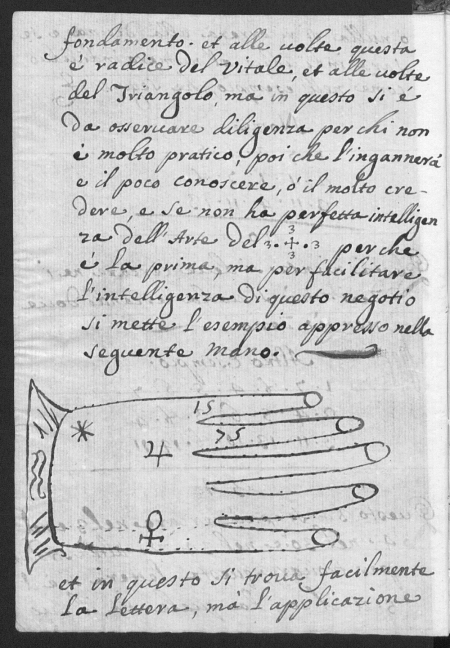 fondamento. et alle volte questa
é radice del Vitale, et alle volte
del Triangolo, ma in questo si é
da osseruare diligenza per chi non
é molto pratico, poi che l'ingannerá
e il poco conoscere, ó il molto cre-
dere, e se non ha perfetta intelligen
za dell'Arte del 3·3+3·3 perche
é la prima, ma per facilitare
l'intelligenza di questo negotio
si mette l'esempio appresso nella
seguente Mano.
15
75
♃
♀
et in questo si troua facilmente
la lettera, má l'applicazione